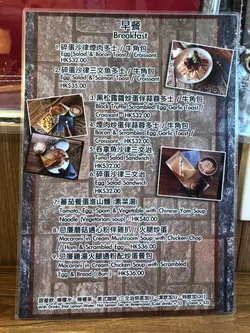 早餐
Breakfast
1. 碎蛋沙律煙肉多士 / 牛角包
Egg Salad & Bacon Toast / Croissant
HK$32.00
2. 碎蛋沙律三文魚多士 / 牛角包
Egg Salad & Salmon Toast / Croissant
HK$35.00
3. 黑松露醬炒蛋伴蒜蓉多士 /
牛角包
Black Truffle Scrambled Egg Garlic Toast /
Croissant
HK$32.00
4. 煙肉炒蛋伴蒜蓉多士 / 牛角包
Bacon & Scrambled Egg Garlic Toast /
Croissant
HK$32.00
5. 吞拿魚沙律三文治
Tuna Salad Sandwich
HK$32.00
6. 碎蛋沙律三文治
Egg Salad Sandwich
HK$32.00
7. 蕃茄餐蛋淮山麵 (素菜湯)
Tomato, Egg, Spam & Vegetable with Chinese Yam Soup
Noodle (Vegetarian soup)
HK$40.00
8. 忌廉蘑菇通心粉伴雞扒 / 火腿炒蛋
Macaroni in Cream Mushroom Soup with Chicken Chop
/ Ham & Scrambled Egg
HK$36.00
9. 忌廉雞湯火腿通粉配炒蛋餐包
Macaroni in Cream Chicken Soup with Scrambled
Egg & Bread (Bun)
HK$36.00